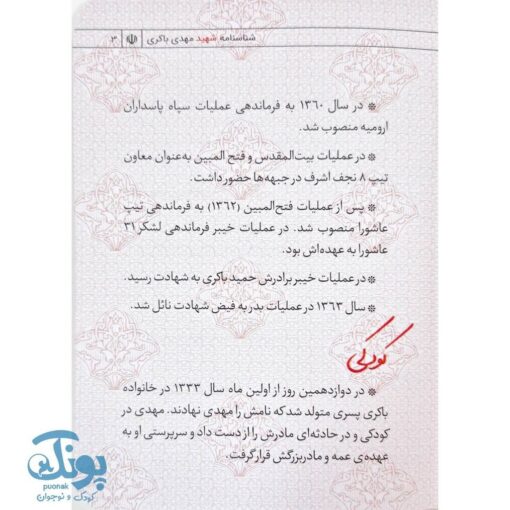 شناسنامه شهید مهدی باکری ۳
* در سال ۱۳۶۰ به فرماندهی عملیات سپاه پاسداران
ارومیه منصوب شد.
* در عملیات بیت‌المقدس و فتح المبین به‌عنوان معاون
تیپ ۸ نجف اشرف در جبهه‌ها حضور داشت.
* پس از عملیات فتح‌المبین (۱۳۶۲) به فرماندهی تیپ
عاشورا منصوب شد. در عملیات خیبر فرماندهی لشکر ۳۱
عاشورا به عهده‌اش بود.
* در عملیات خیبر برادرش حمید باکری به شهادت رسید.
* سال ۱۳۶۳ در عملیات بدر به فیض شهادت نائل شد.
کودکی
* در دوازدهمین روز از اولین ماه سال ۱۳۳۳ در خانواده
باکری پسری متولد شد که نامش را مهدی نهادند. مهدی در
کودکی و در حادثه‌ای مادرش را از دست داد و سرپرستی او به
عهده‌ی عمه و مادربزرگش قرار گرفت.
پونک
puonak
کودک و نوجوان